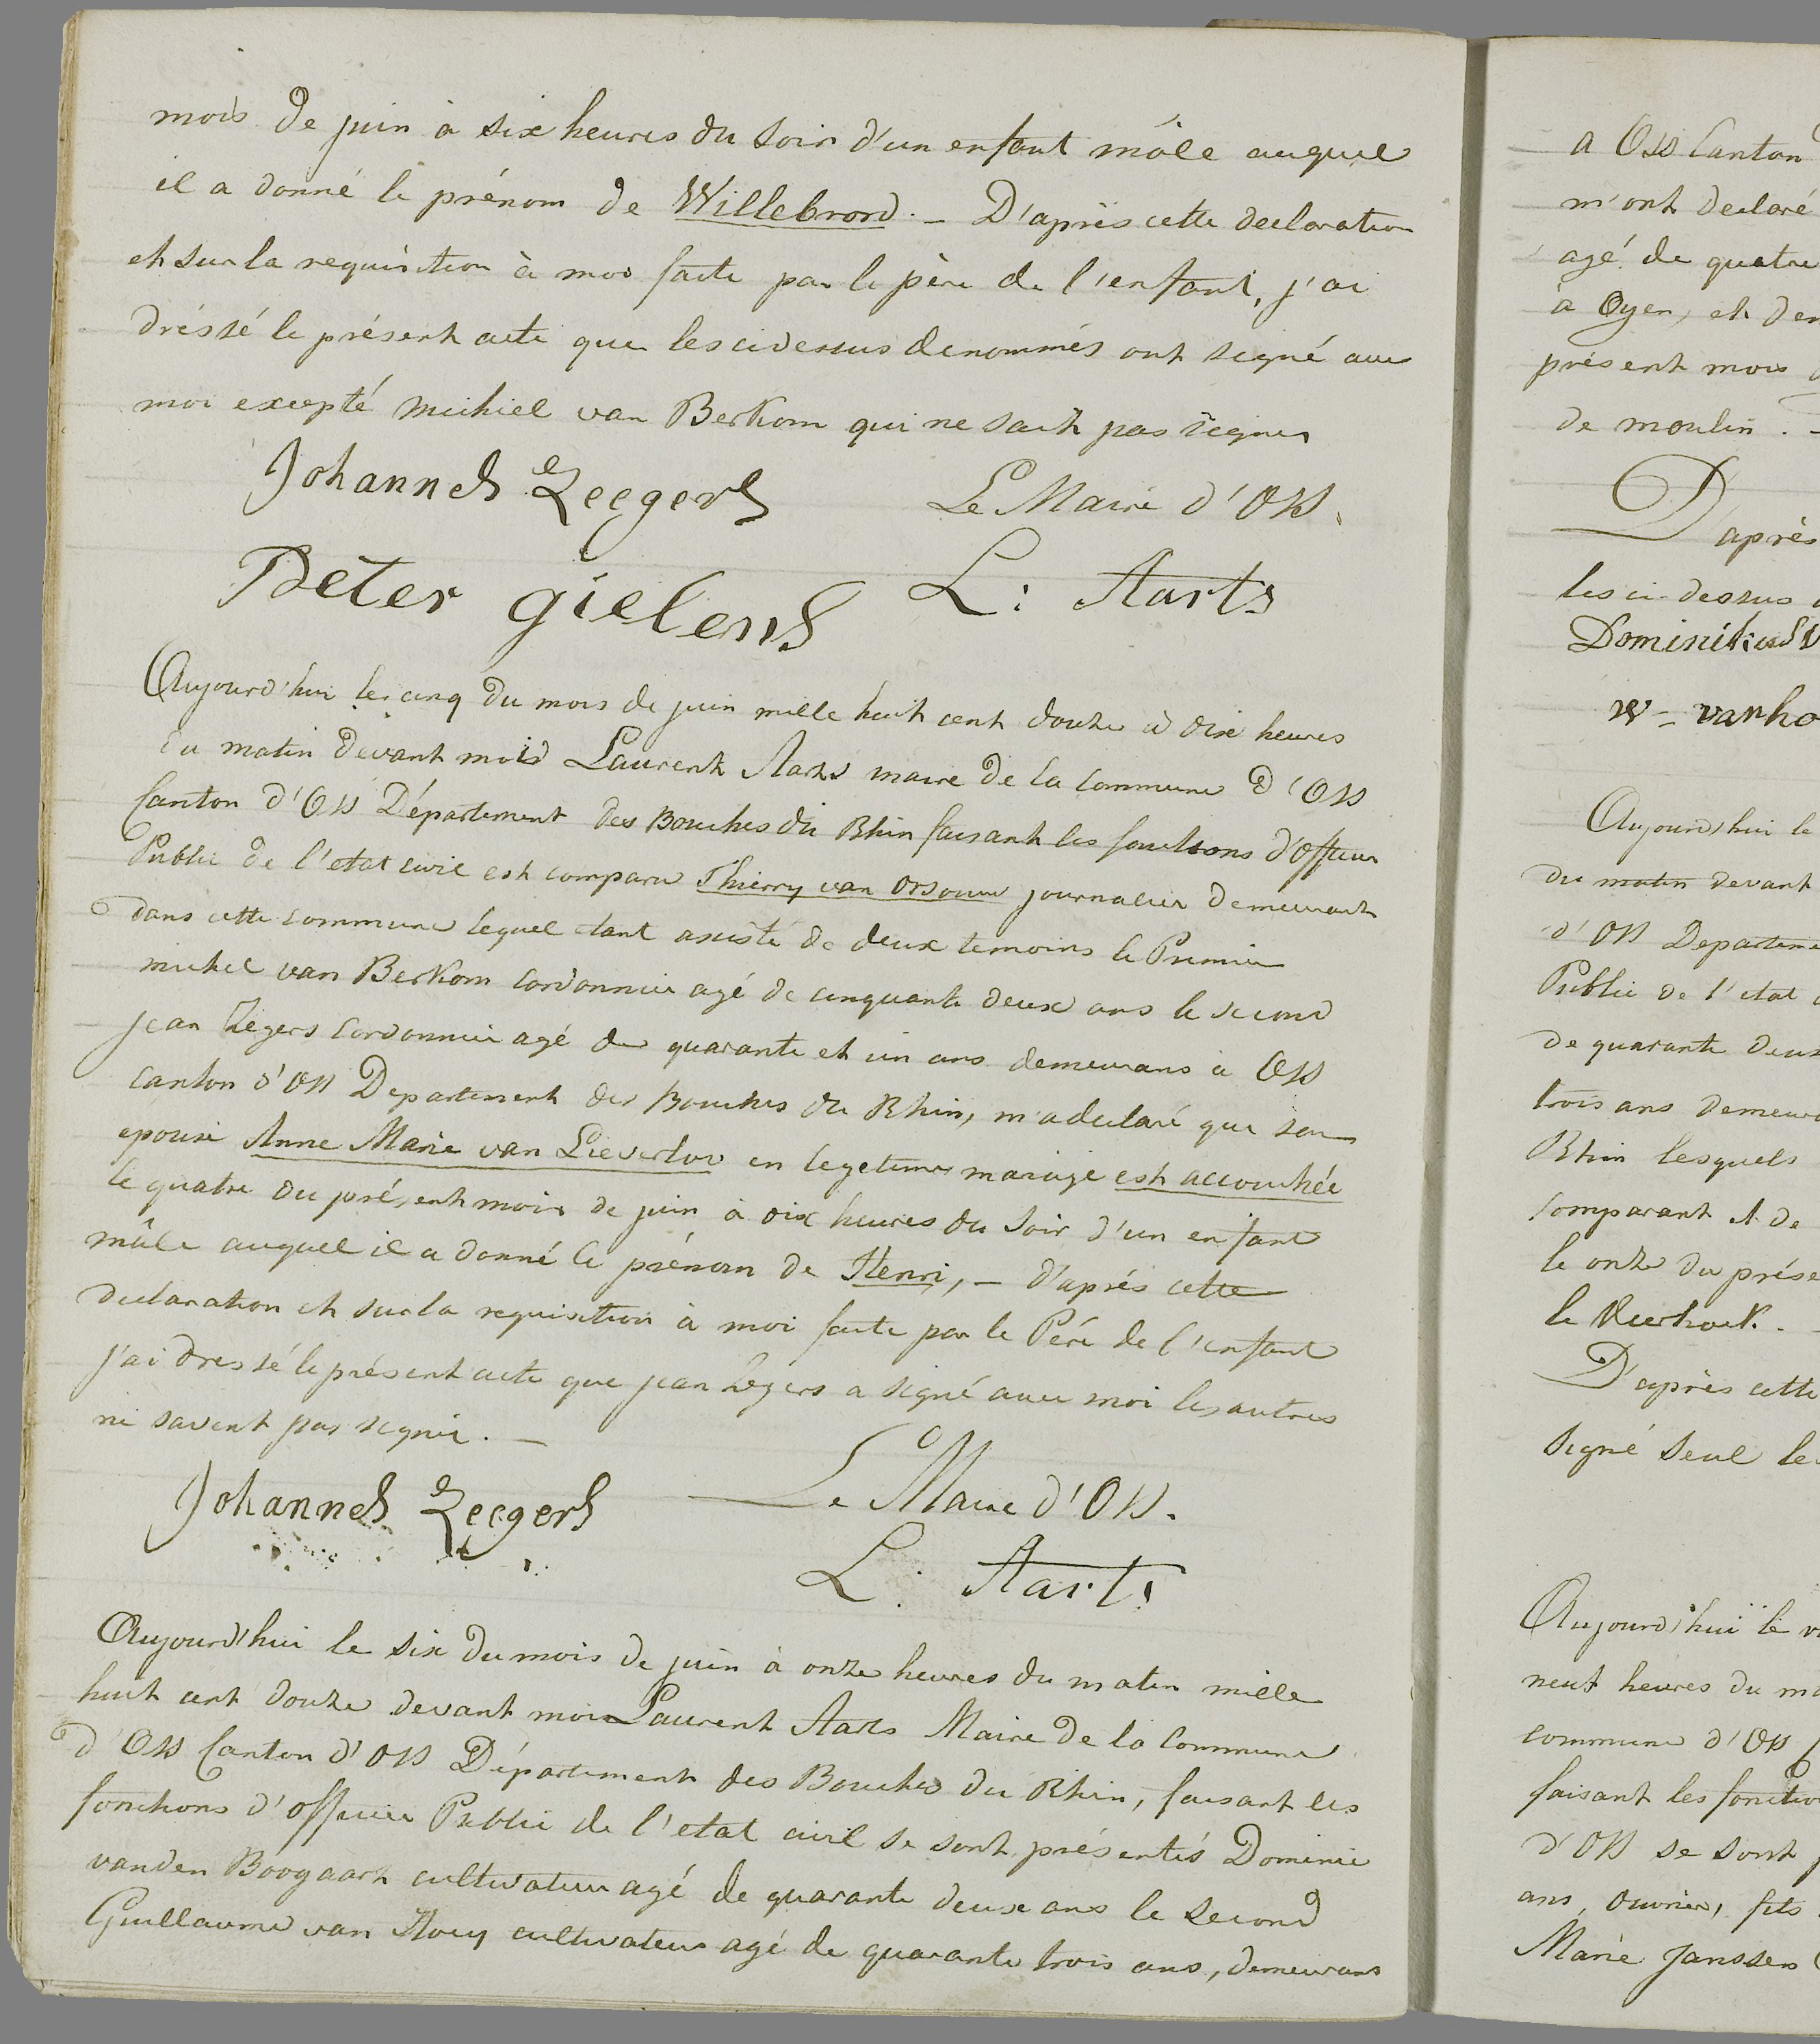 mois de juin à six heures du soir d'un enfant mâle auquel
il a donné le prénom de Willebrord. – D'après cette declaration
et sur la requisition à moi faite par le père de l'enfant, j'ai
dréssé le présent acte que les cidessus denommés ont signé avec
moi excepté Michiel van Berkom qui ne sait pas signer
Johannes Zeegers
Le Maire d'Oss.
Peter gielens
L: Aarts
Aujourd'hui le cinq du mois de juin mille huit cent douze à dix heures
du matin devant moi Laurent Aarts maire de la Commune d'Oss
Canton d'Oss Département des Bouches du Rhin faisant les fonctions d'Officier
Public de l'etat civil est comparu Thierry van Orsouw journalier demeurant
dans cette commune lequel etant assisté de deux temoins le Premier
michel van Berkom Cordonnier agé de cinquante deux ans le second
Jean Zegers Cordonnier agé de quarante et un ans demeurans à Oss
Canton d'Oss Departement des Bouches du Rhin, m'a declaré que son
epouse Anne Marie van Lieverloo en legetime mariage est accouchée
le quatre du présent mois de juin à dix heures du soir d'un enfant
mâle auquel il a donné le prénom de Henri, – d'aprés cette
declaration et sur la requisition à moi faite par le Pére de l'enfant
j'ai dressé le présent acte que jean Zegers a signé avec moi les autres
ne savent pas signer. –
Johannes Zeegers
Le Maire d'Oss.
L: Aarts
Aujourd'hui le six du mois de juin à onze heures du matin mille
huit cent douze devant moi Laurent Aarts Maire de la Commune
d'Oss Canton d'Oss Département des Bouches du Rhin, faisant les
fonctions d'officier Public de l'etat civil se sont présentés Dominic
vanden Boogaart cultivateur agé de quarante deux ans le second
Guillaume van Houy cultivateur agé de quarante trois ans, demeurans
a Oss Canton
m'ont declaré
agé de quatre
à Oyen, et
présent mois
de moulin. –
D'après
les ci-dessus
Dominikus
W – vanho
Aujourd'hui le
du matin devant
d'Oss Departeme
Public de l'etat
de quarante deux
trois ans demeur
Rhin lesquels
Comparant et de
le onze du prése
le
D'après cette
signé seul le
Aujourd'hui le
neuf heures du ma
commune d'Oss
faisant les fonction
d'Oss se sont
ans, ouvrier, fils
Marie Janssen